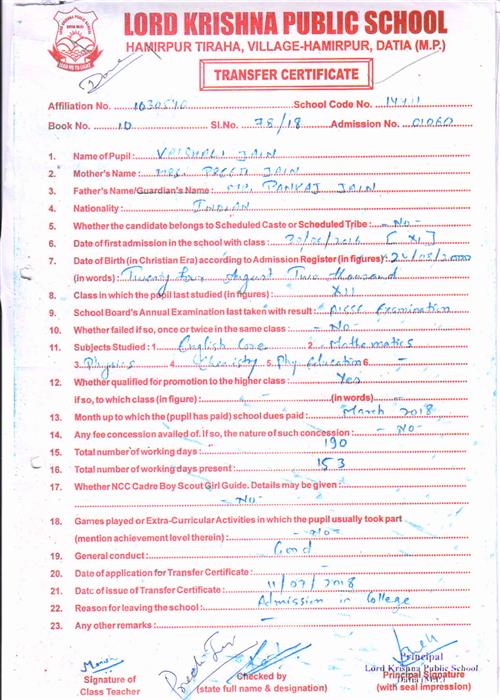 LORD KRISHNA PUBLIC SCHOOL
HAMIRPUR TIRAHA, VILLAGE-HAMIRPUR, DATIA (M.P.)
TRANSFER CERTIFICATE
Affiliation No. ...1030540 School Code No. ...14411
Book No. ...10 Sl.No. ...78/18 Admission No. ...01060
1. Name of Pupil : VAISHALI JAIN
2. Mother's Name : MRS. PREETI JAIN
3. Father's Name/Guardian's Name : MR. PANKAJ JAIN
4. Nationality : INDIAN
5. Whether the candidate belongs to Scheduled Caste or Scheduled Tribe : -No-
6. Date of first admission in the school with class : [XI]
7. Date of Birth (in Christian Era) according to Admission Register (in figures) : 24/08/2000
(in words) : Twenty four August Two thousand
8. Class in which the pupil last studied (in figures) : XII
9. School Board's Annual Examination last taken with result : AISSC Examination
10. Whether failed if so, once or twice in the same class : -No-
11. Subjects Studied : 1. English Core 2. Mathematics
3. Physics 4. Chemistry 5. Phy Education 6. -
12. Whether qualified for promotion to the higher class : Yes
if so, to which class (in figure) : - (in words) -
13. Month up to which the (pupil has paid) school dues paid : March 2018
14. Any fee concession availed of. if so, the nature of such concession : -No-
15. Total number of working days : 190
16. Total number of working days present : 153
17. Whether NCC Cadre Boy Scout Girl Guide. Details may be given :
-No-
18. Games played or Extra-Curricular Activities in which the pupil usually took part
(mention achievement level therein) : -No-
19. General conduct : Good
20. Date of application for Transfer Certificate :
21. Date of issue of Transfer Certificate : 11/07/2018
22. Reason for leaving the school : Admission in College
23. Any other remarks : -
Principal
Lord Krishna Public School
Datia (M.P.)
Signature of Checked by Principal Signature
Class Teacher (state full name & designation) (with seal impression)